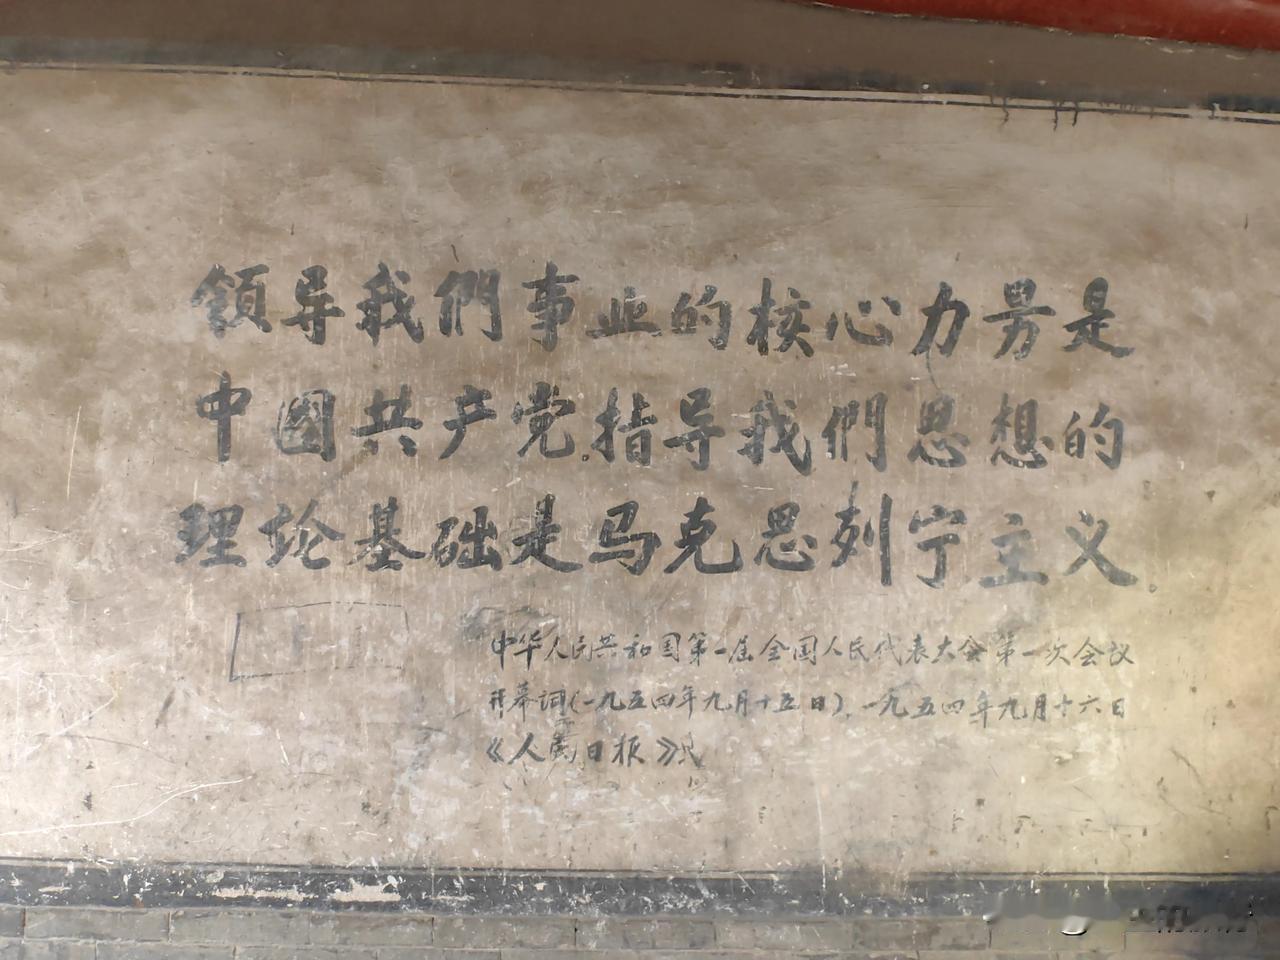 領导我們事业的核心力另是
中國共产党.指导我們思想的
理论基础是马克思列宁主义.
中华人民共和国第一届全国人民代表大会第一次会议
开幕词(一九五四年九月十五日).一九五四年九月十六日
《人民日报》